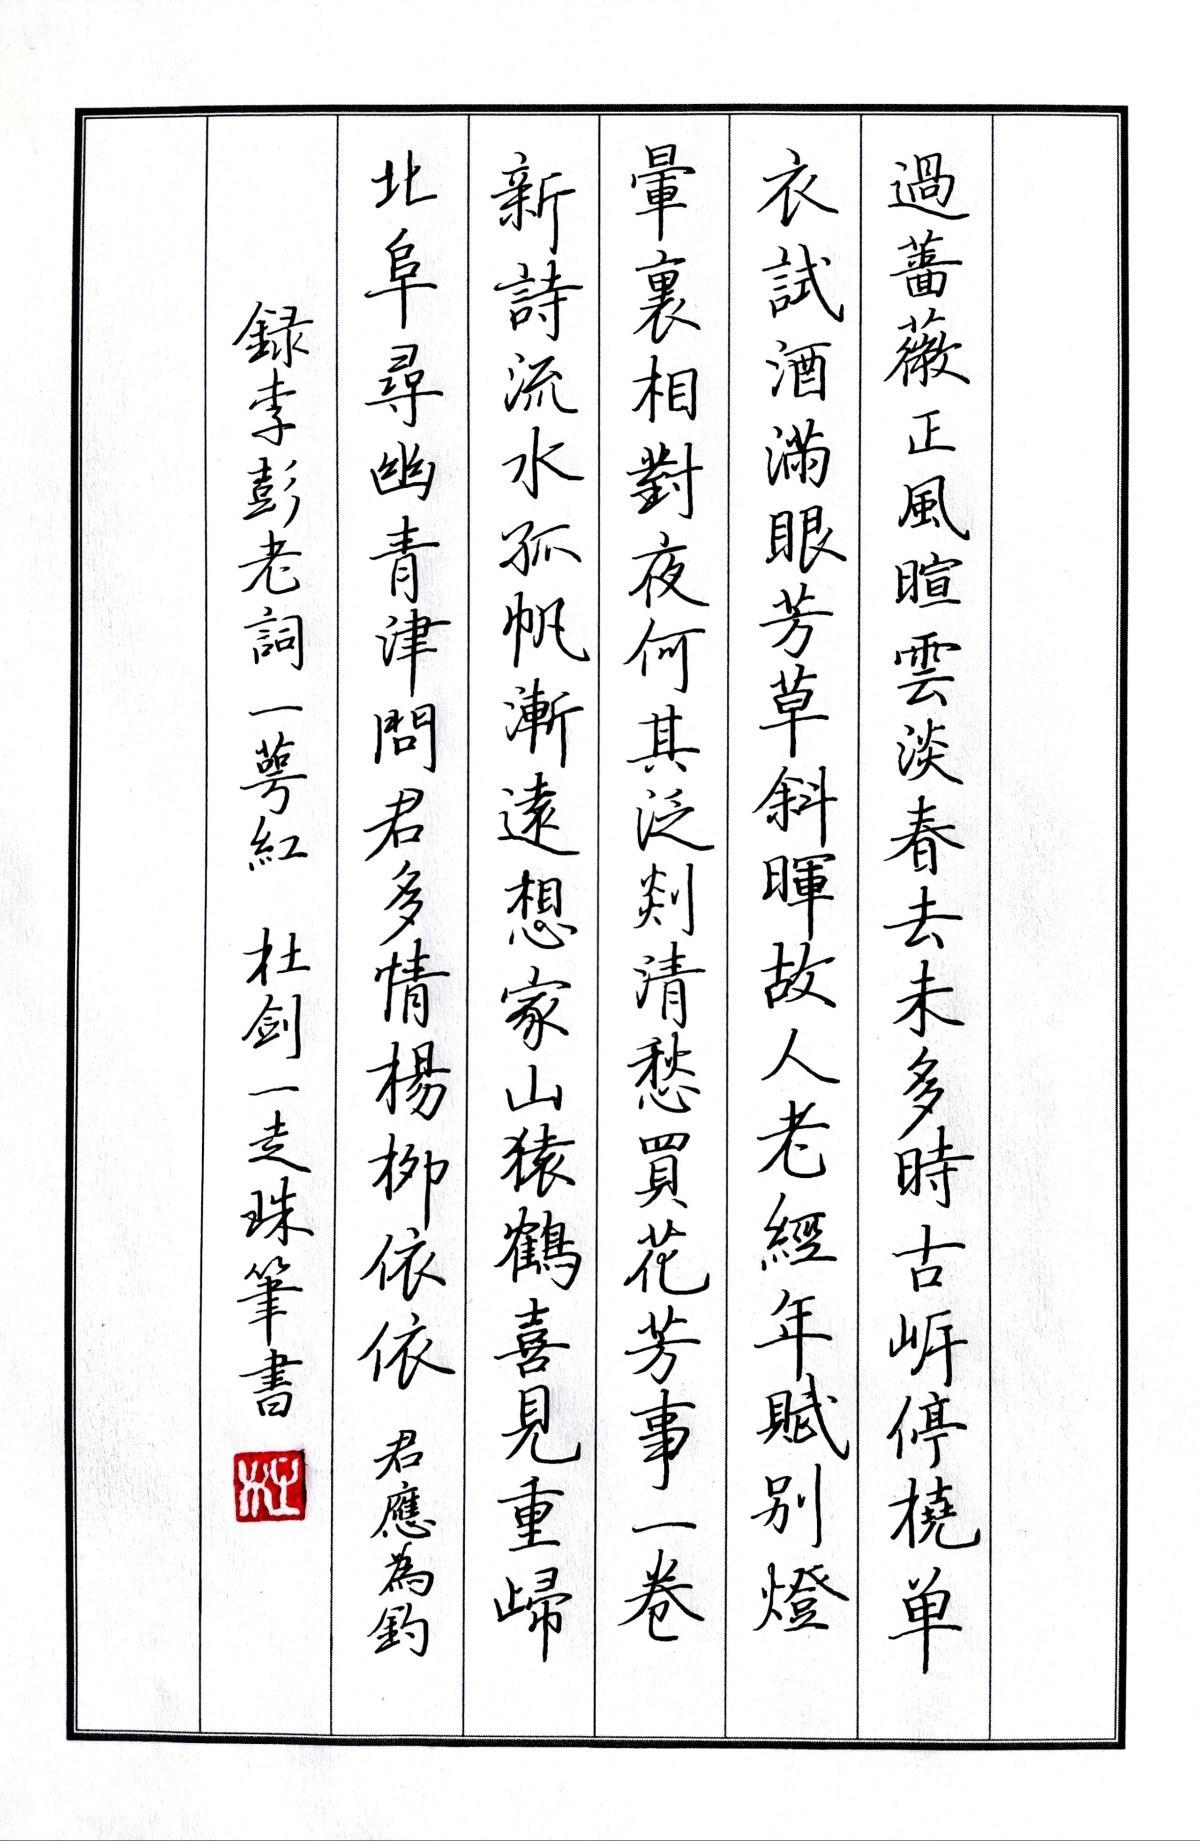 過薔薇正風暄雲淡春去未多時古岸停橈单
衣試酒滿眼芳草斜暉故人老經年賦別燈
暈裏相對夜何其泛剡清愁買花芳事一卷
新詩流水孤帆漸遠想家山猿鶴喜見重歸
北阜尋幽青津問君多情楊柳依依 君應為釣
録李彭老詞一萼紅 杜剑一走珠筆書
杜